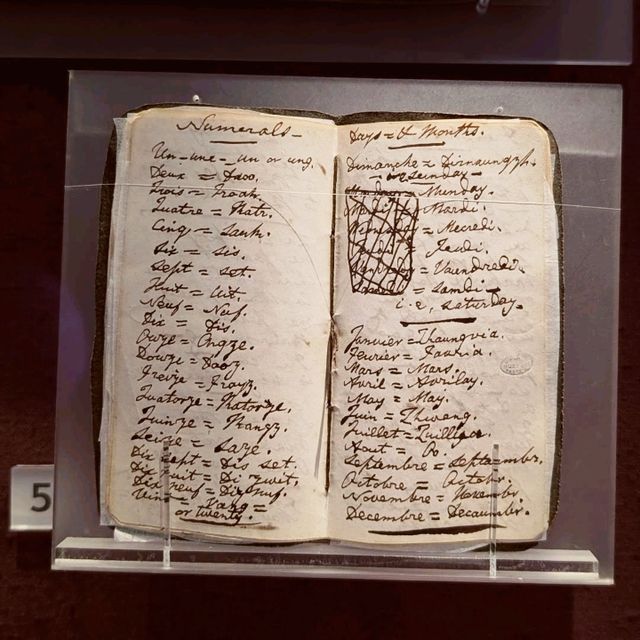 Numerals
Un - une - un or ung.
Deux = Doo,
Trois = Troah,
Quatre = Katr.
Cinq = sank.
Six = sis.
Sept = set.
Huit = Uit.
Neuf = Nuf.
Dix = Dis.
Onze = Ongze.
Douze = Dooz.
Treize =
Quatorze = Katorze.
Quinze = Kangz.
Seize = Saze.
Dix sept = Dis set.
Dix huit = Di zwit.
Dix neuf = Diz nuf.
=
or twenty.
Days = & Months.
Dimanche =
or sunday -
= Munday.
= Mardi.
= Mecredi.
= Jeudi.
= Vaundredi.
= samdi -
i.e, saturday.
Janvier =
Fevrier =
Mars = Mars.
Avril = Avrilay.
May = May.
Juin =
Juillet =
Aout = Oo.
Septembre = septambr.
Octobre = Octobr.
Novembre = Novembr.
Decembre = Decaumbr.
5